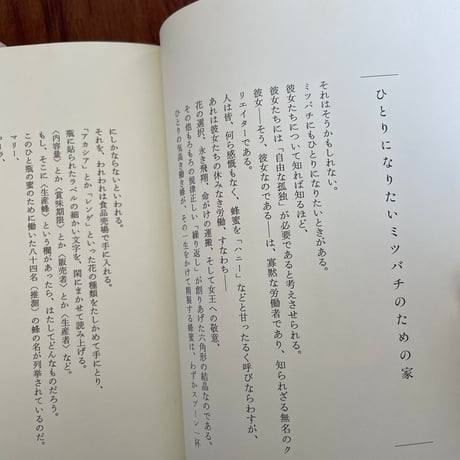 ひとりになりたいミツバチのための家
それはそうかもしれない。
ミツバチにもひとりになりたいときがある。
彼女たちについて知れば知るほど、
彼女たちには「自由な孤独」が必要であると考えさせられる。
彼女――そう、彼女なのである――は、寡黙な労働者であり、知られざる無名のク
リエイターである。
人は皆、何ら感慨もなく、蜂蜜を「ハニー」などと甘ったるく呼びならわすが、
あれは彼女たちの休みなき労働、すなわち――
花の選択、永き飛翔、命がけの運搬、そして女王への敬意、
その他もろもろの規律正しい「繰り返し」が創りあげた六角形の結晶なのである。
ひとりの気高き働き蜂が、その一生をかけて精製する蜂蜜は、わずかスプーン一杯
にしかならないといわれる。
それを、われわれは食品売場で手に入れる。
「アカシア」とか「レンゲ」といった花の種類をたしかめて手にとり、
瓶に貼られたラベルの細かい文字を、閑にまかせて読み上げる。
〈内容量〉とか〈賞味期限〉とか〈販売者〉とか〈生産者〉など。
もし、そこに〈生産蜂〉という欄があったら、はたしてどんなものだろう。
このひと瓶の蜜のために働いた八十四名(推測)の蜂の名が列挙されているのだ。
マリー、